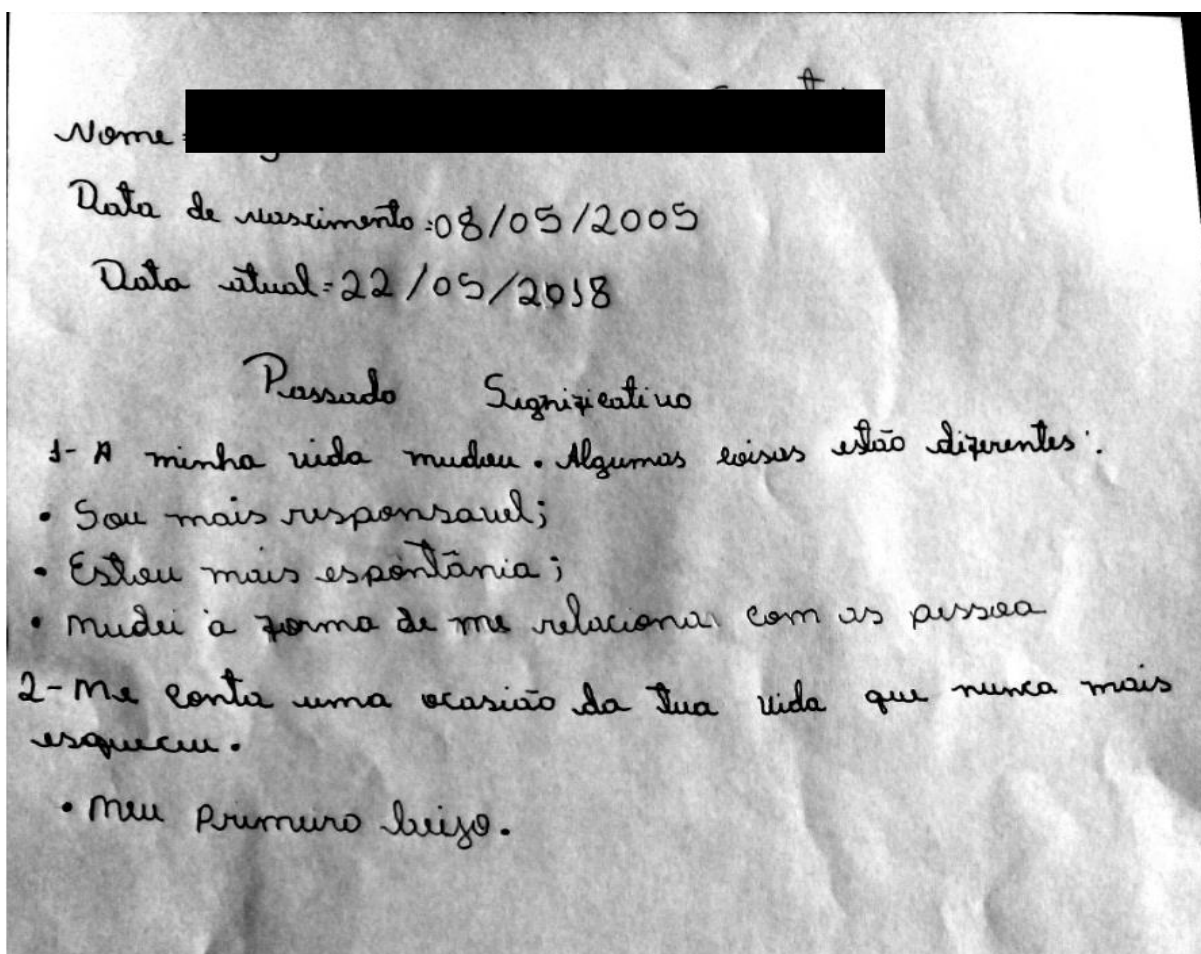 Nome =
Data de nascimento = 08/05/2005
Data atual = 22/05/2018
Passado Significativo
1- A minha vida mudou. Algumas coisas estão diferentes:
• Sou mais responsavel;
• Estou mais espontânia;
• Mudei a forma de me relacionar com as pessoa
2- Me conta uma ocasião da tua vida que nunca mais
esqueceu.
• Meu primeiro beijo.